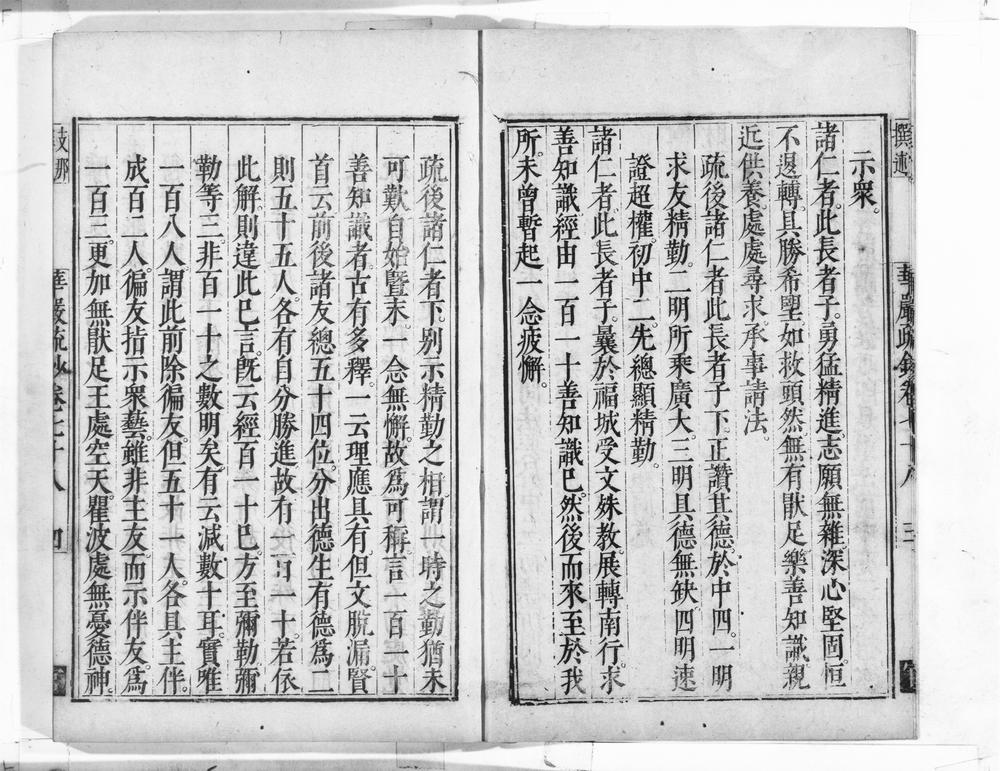 撰述
華嚴疏鈔卷七十八
三
示衆。
諸仁者。此長者子。勇猛精進。志願無雜。深心堅固。恒
不退轉。具勝希望。如救頭然。無有猒足。樂善知識。親
近供養。處處尋求。承事請法。
疏後諸仁者此長者子下正讚其德。於中四。一明
求友精勤。二明所乘廣大。三明具德無缺。四明速
證超權。初中二。先總顯精勤。
諸仁者。此長者子。曩於福城受文殊教。展轉南行。求
善知識。經由一百一十善知識已。然後而來至於我
所。未曾暫起一念疲懈。
疏後諸仁者下。別示精勤之相。謂一時之勤猶未
可歎。自始暨末。一念無懈。故爲可稱。言一百一十
善知識者。古有多釋。一云理應具有。但文脫漏。賢
首云。前後諸友總五十四位。分出德生有德爲二。
則五十五人。各有自分勝進。故有一百一十。若依
此解則違此已言。旣云經百一十已。方至彌勒。彌
勒等三。非百一十之數明矣。有云減數十耳。實唯
一百八人。謂此前除徧友。但五十一人。各具主伴。
成百二人。徧友指示衆藝。雖非主友而示伴友。爲
一百三。更加無猒足王處空天。瞿波處無憂德神。
華嚴疏鈔卷七十八
四